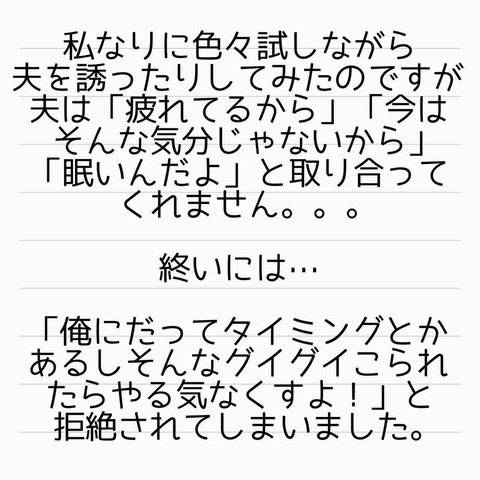 私なりに色々試しながら
夫を誘ったりしてみたのですが
夫は「疲れてるから」「今は
そんな気分じゃないから」
「眠いんだよ」と取り合って
くれません。。。
終いには…
「俺にだってタイミングとか
あるしそんなグイグイこられ
たらやる気なくすよ！」と
拒絶されてしまいました。